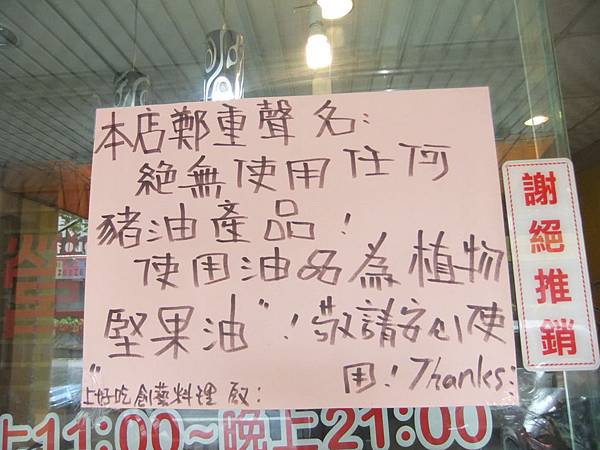 本店鄭重聲名：
絕無使用任何
豬油產品！
使用油品為植物
堅果油"！敬請安心使
用！Thanks：
"上好吃創藝料理 啟：
謝絕推銷
上11:00~晚上21:00
營